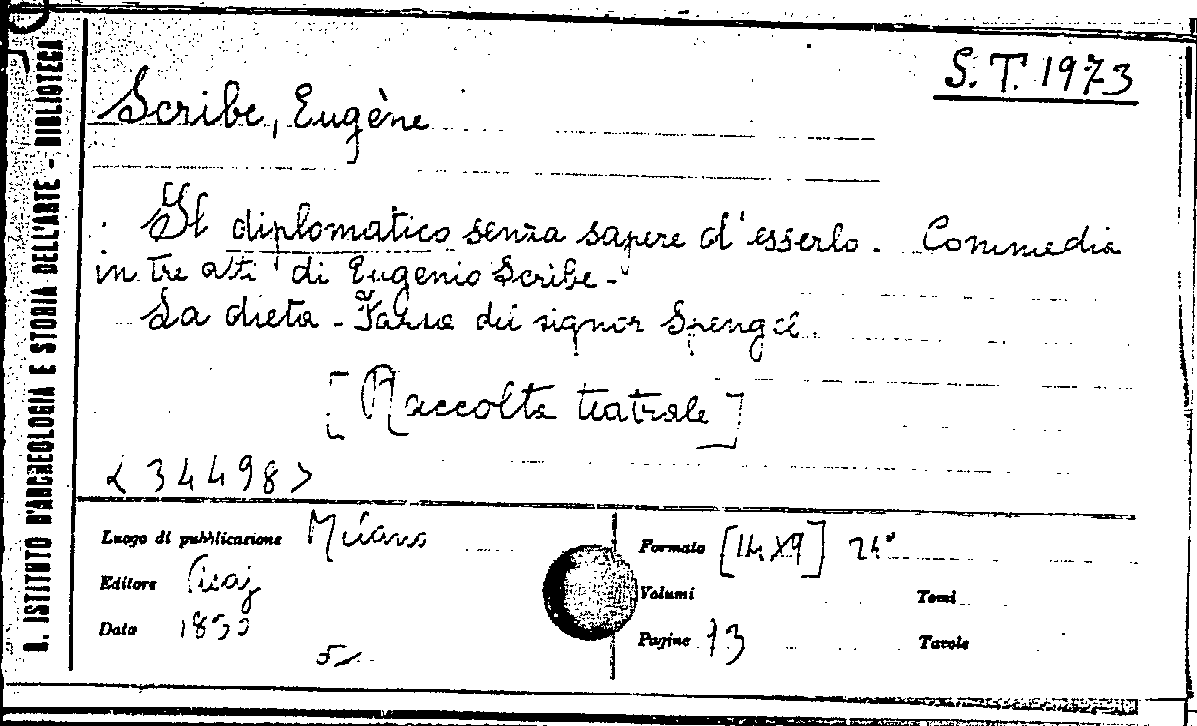 R. ISTITUTO D'ARCHEOLOGIA E STORIA DELL'ARTE - BIBLIOTECA
S. T. 1973
Scribe, Eugène
Il diplomatico senza sapere d'esserlo. Commedia
in tre atti di Eugenio Scribe -
La dieta - Farsa del signor
[Raccolta teatrale]
<34498>
Luogo di pubblicazione Milano
Editore
Data
Formato [14x9] 24°
Volumi
Tomi
Pagine 73
Tavole